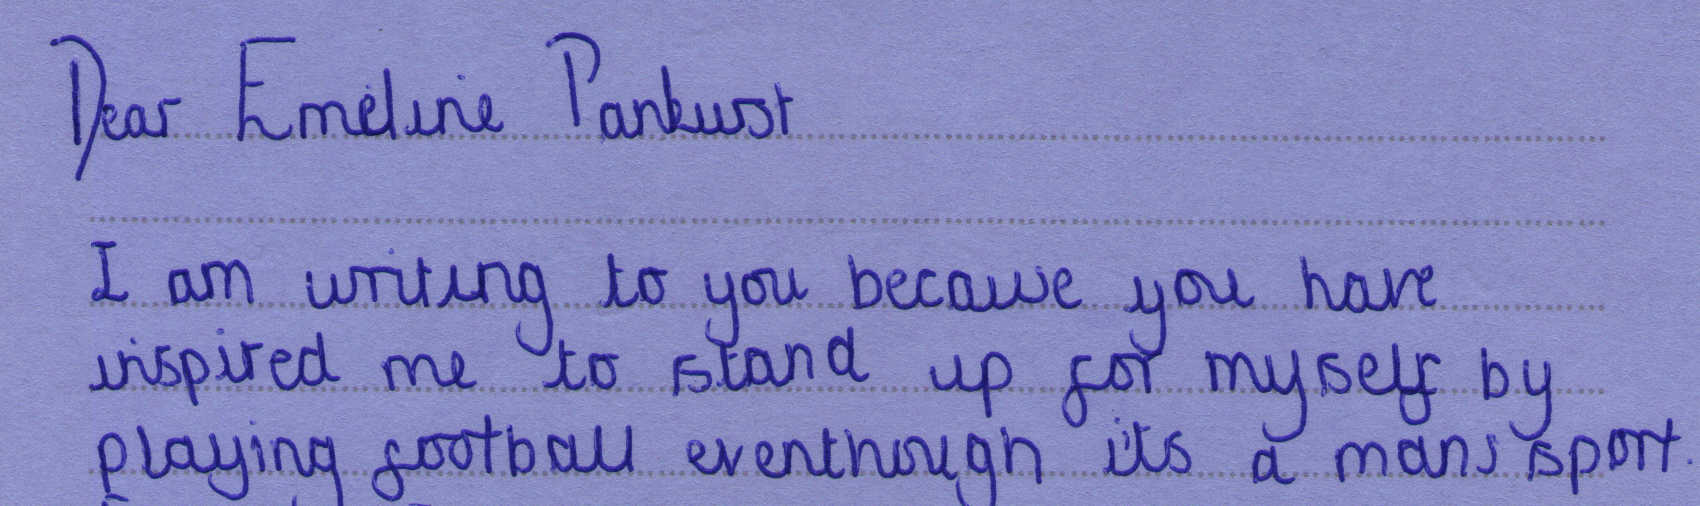 Dear Emeline Pankurst
I am writing to you because you have
inspired me to stand up for myself by
playing football eventhough its a mans sport.